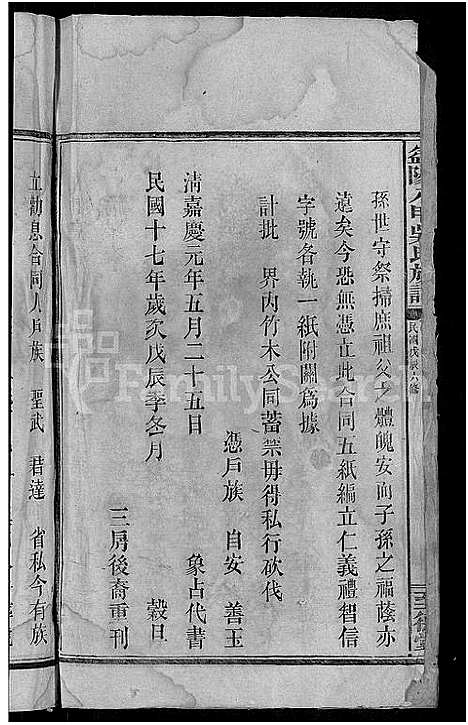 益陽八甲吳氏族譜
民國戊辰六修
三德堂
孫世守祭掃庶祖父之體魄安而子孫之福蔭亦
遠矣今恐無憑立此合同五紙編立仁義禮智信
字號各執一紙附關爲據
計批 界內竹木公同蓄禁毋得私行砍伐
憑戶族 自安 善玉
象占代書
淸嘉慶元年五月二十五日
民國十七年歲次戊辰季冬月 穀旦
三房後裔重刊
立勸息合同人戶族 聖武 君達 省私今有族
FamilySearch